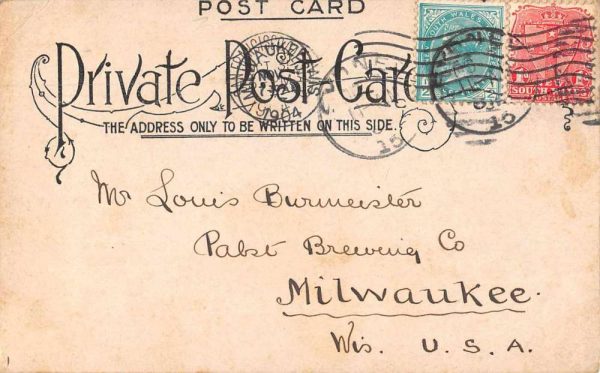 POST CARD
Private Post Card
THE ADDRESS ONLY TO BE WRITTEN ON THIS SIDE.
1904
15
15
SOUTH WALES
SOUTH
Mr Louis Burmeister
Pabst Brewing Co
Milwaukee.
Wis. U. S. A.